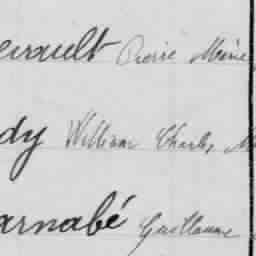 erault Pierre Marie
dy William Charles M
arnabé Guillaume